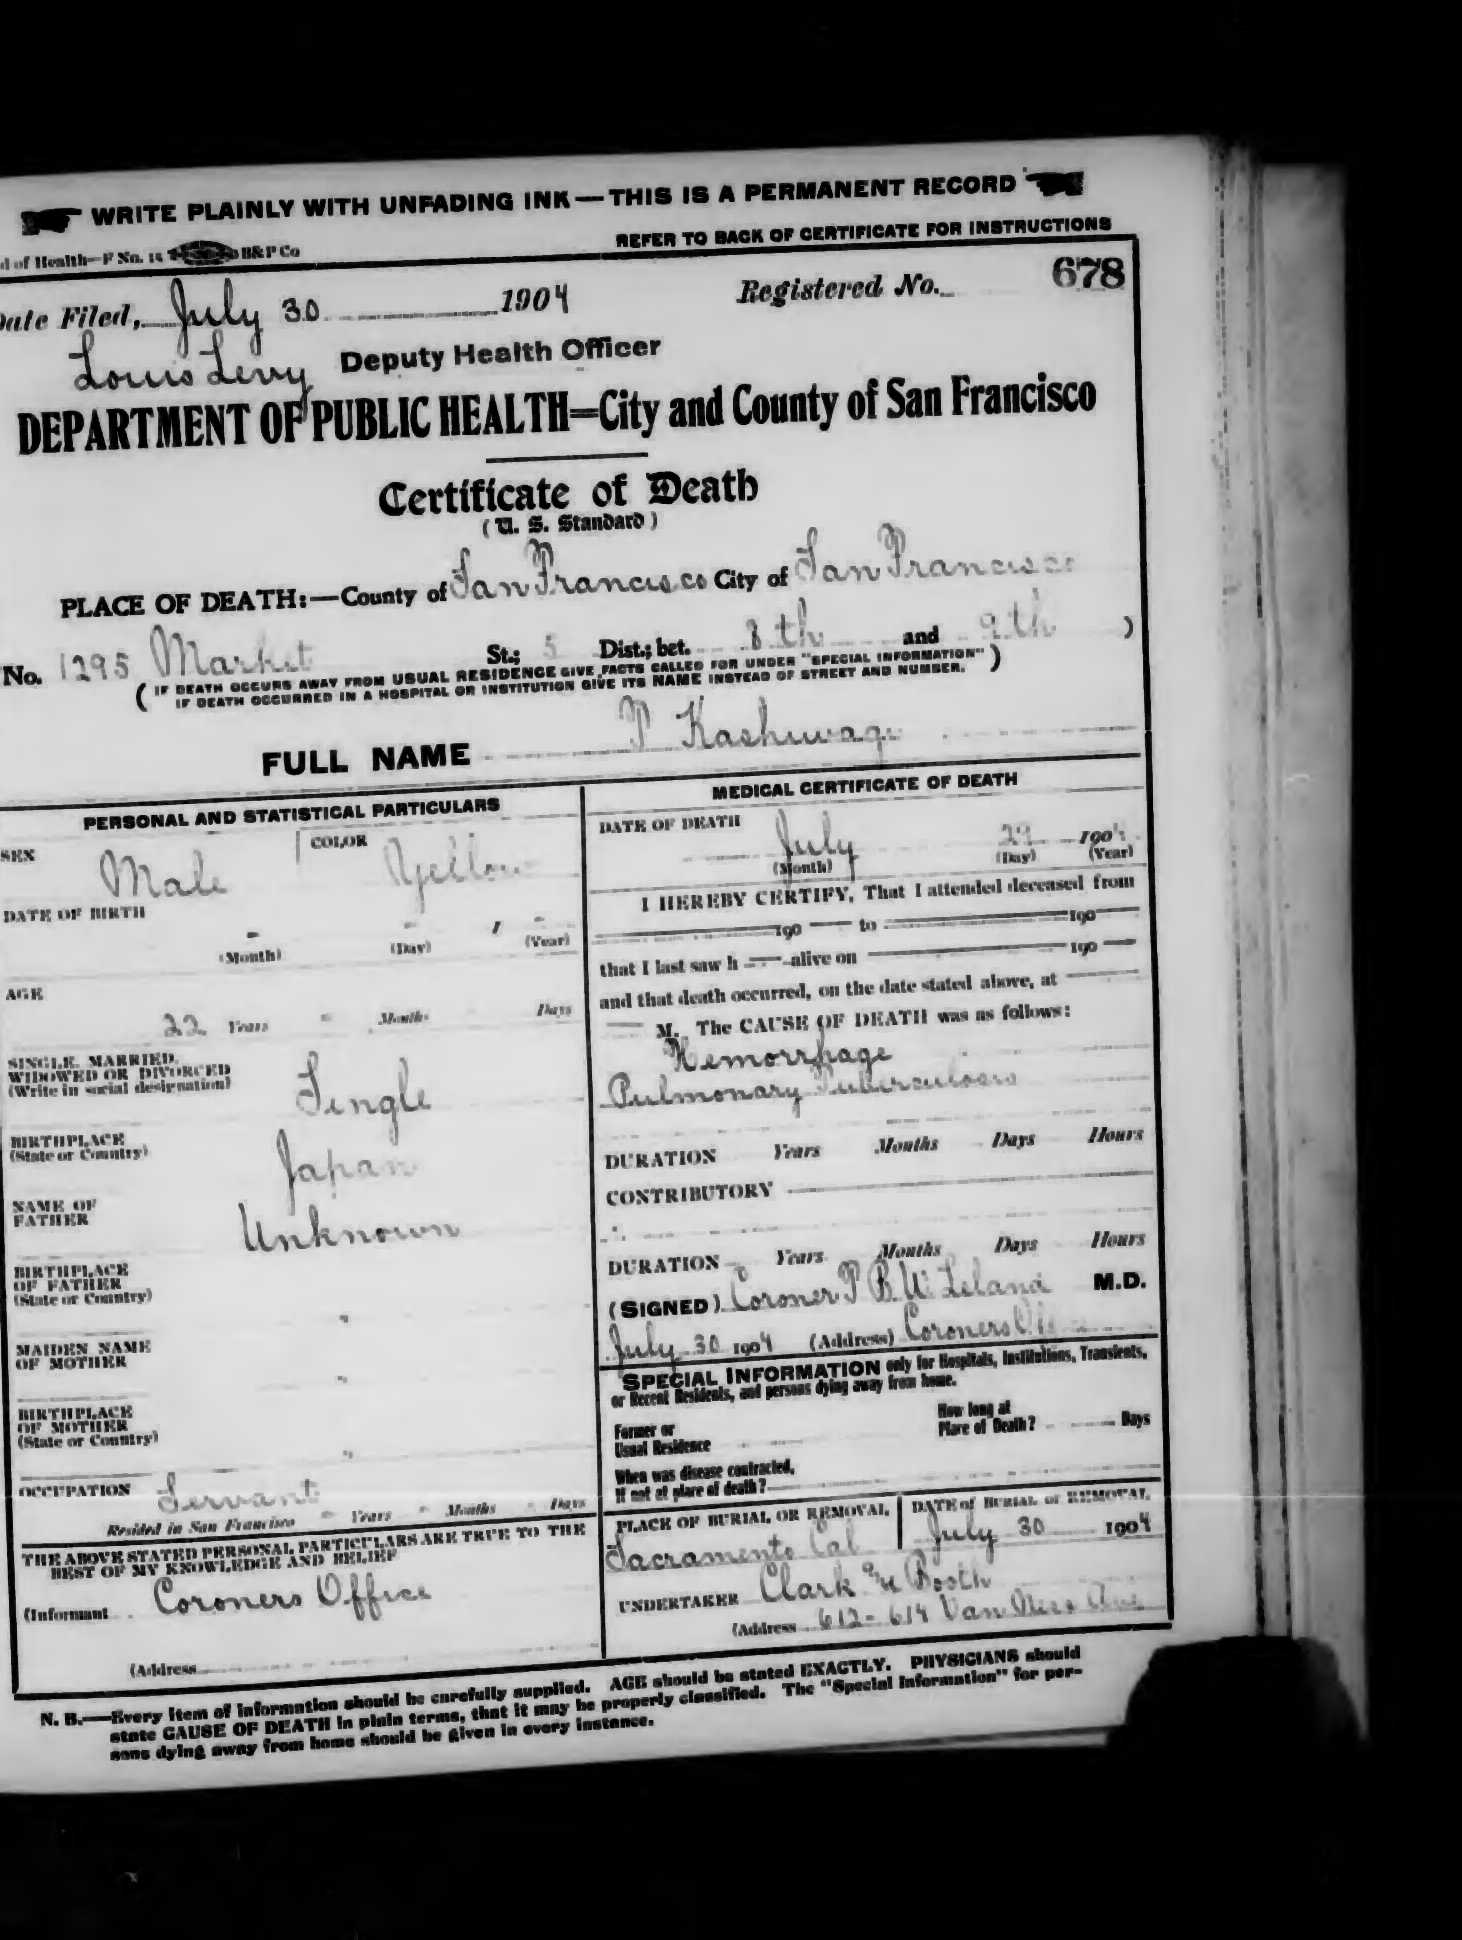 WRITE PLAINLY WITH UNFADING INK—THIS IS A PERMANENT RECORD
d of Health—F No. 15 B&P Co REFER TO BACK OF CERTIFICATE FOR INSTRUCTIONS
Date Filed, July 30 1904 Registered No. 678
Louis Levy Deputy Health Officer
DEPARTMENT OF PUBLIC HEALTH=City and County of San Francisco
Certificate of Death
(U. S. Standard)
PLACE OF DEATH:—County of San Francisco City of San Francisco
No. 1295 Market St.; 5 Dist.; bet. 8th and 9th )
( IF DEATH OCCURS AWAY FROM USUAL RESIDENCE GIVE FACTS CALLED FOR UNDER "SPECIAL INFORMATION" )
IF DEATH OCCURRED IN A HOSPITAL OR INSTITUTION GIVE ITS NAME INSTEAD OF STREET AND NUMBER.
FULL NAME Kashiwagi
PERSONAL AND STATISTICAL PARTICULARS
SEX Male COLOR Yellow
DATE OF BIRTH
- - 1 -
(Month) (Day) (Year)
AGE
22 Years - Months Days
SINGLE, MARRIED,
WIDOWED OR DIVORCED
(Write in social designation) Single
BIRTHPLACE
(State or Country) Japan
NAME OF
FATHER Unknown
BIRTHPLACE
OF FATHER
(State or Country) "
MAIDEN NAME
OF MOTHER "
BIRTHPLACE
OF MOTHER
(State or Country) "
OCCUPATION Servant
Resided in San Francisco - Years - Months - Days
THE ABOVE STATED PERSONAL PARTICULARS ARE TRUE TO THE
BEST OF MY KNOWLEDGE AND BELIEF
(Informant Coroners Office
(Address
MEDICAL CERTIFICATE OF DEATH
DATE OF DEATH
July 29 1904
(Month) (Day) (Year)
I HEREBY CERTIFY, That I attended deceased from
190 to 190
that I last saw h alive on 190
and that death occurred, on the date stated above, at
M. The CAUSE OF DEATH was as follows:
Hemorrhage
Pulmonary Tuberculosis
DURATION Years Months Days Hours
CONTRIBUTORY
DURATION Years Months Days Hours
(SIGNED) Coroner T B W Leland M.D.
July 30 1904 (Address) Coroners Office
SPECIAL INFORMATION only for Hospitals, Institutions, Transients,
or Recent Residents, and persons dying away from home.
Former or
Usual Residence
How long at
Place of Death? Days
When was disease contracted,
If not at place of death?
PLACE OF BURIAL OR REMOVAL
Sacramento Cal
DATE of BURIAL or REMOVAL
July 30 1904
UNDERTAKER Clark & Booth
(Address 612-614 Van Ness Ave
N. B.—Every item of information should be carefully supplied. AGE should be stated EXACTLY. PHYSICIANS should
state CAUSE OF DEATH in plain terms, that it may be properly classified. The "Special Information" for per-
sons dying away from home should be given in every instance.